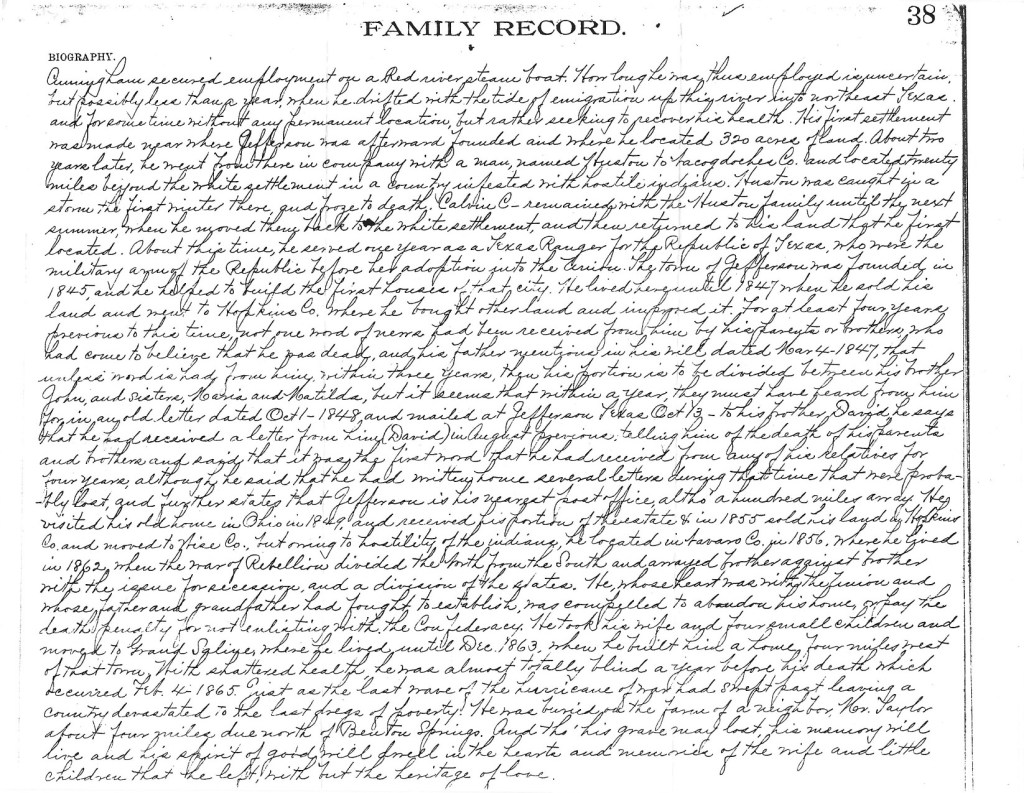 38
FAMILY RECORD.
BIOGRAPHY.
Cuningham secured employment on a Red river steam boat. How long he was thus employed is uncertain,
but possibly less than a year, when he drifted with the tide of emigration up this river into northeast Texas.
and for some time without any permanent location, but rather seeking to recover his health. His first settlement
was made near where Jefferson was afterward founded and where he located 320 acres of land. About two
years later, he went from there in company with a man, named Huston to Nacogdoches Co. and located twenty
miles beyond the white settlement in a country infested with hostile indians. Huston was caught in a
storm the first winter there, and froze to death. Calvin C- remained with the Huston family until the next
summer, when he moved them back to the white settlement, and then returned to his land that he first
located. About this time, he served one year as a Texas Ranger for the Republic of Texas, who were the
military arm of the Republic before her adoption into the Union. The town of Jefferson was founded in
1845, and he helped to build the first houses of that city. He lived here until 1847 when he sold his
land and went to Hopkins Co. where he bought other land and improved it. For at least four years
previous to this time, not one word of news had been received from him by his parents or brothers, who
had come to believe that he was dead, and his father mentions in his will dated Mar 4-1847, that
unless word is had from him, within three years, then his portion is to be divided between his brother
John, and sisters, Maria and Matilda, but it seems that within a year, they must have heard from him
for in an old letter dated Oct 1-1848, and mailed at Jefferson Texas Oct 13- to his brother, David, he says
that he had received a letter from him (David) in August previous, telling him of the death of his parents
and brothers and said that it was the first word that he had received from any of his relatives for
four years, although he said that he had written home several letters during that time that were proba-
-bly lost, and further states that Jefferson is his nearest post office, altho' a hundred miles away. He
visited his old home in Ohio in 1849, and received his portion of the estate & in 1855 sold his land in Hopkins
Co. and moved to Wise Co., but owing to hostility of the indians, he located in Navaro Co. in 1856, where he lived
in 1862, when the war of Rebellion divided the North from the South and arrayed brother against brother
with the issue for secession, and a division of the states. He, whose heart was with the Union and
whose father and grandfather had fought to establish, was compelled to abandon his home, or pay the
death penalty for not enlisting with the Confederacy. He took his wife and four small children and
moved to Grand Saline, where he lived until Dec. 1863, when he built him a home, four miles west
of that town. With shattered health he was almost totally blind a year before his death which
occurred Feb. 4-1865, just as the last wave of the hurricane of war had swept past leaving a
country devastated to the last dregs of poverty. He was buried on the farm of a neighbor, Mr. Taylor
about four miles due north of Benton Springs. And tho' his grave may lost, his memory will
live and his spirit of good will dwell in the hearts and memories of the wife and little
children that he left, with but the heritage of love.